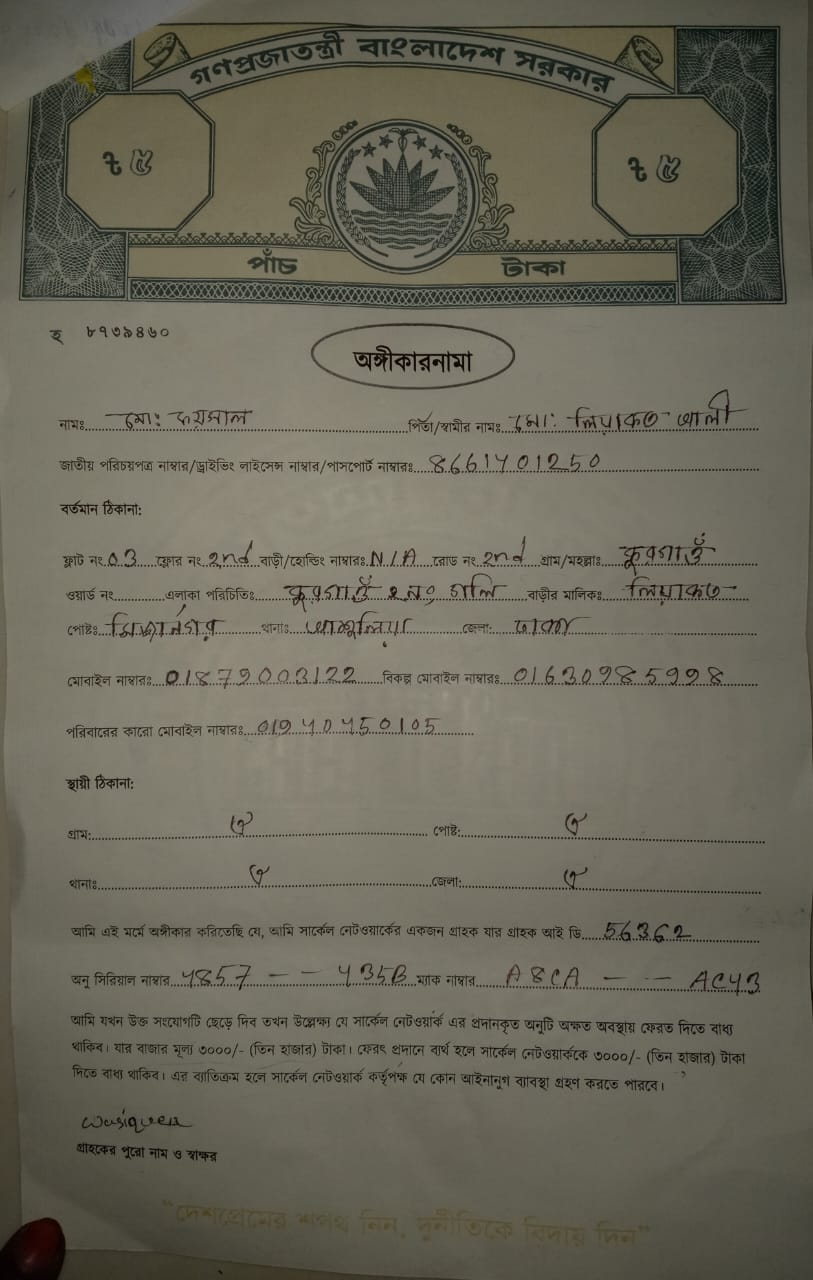 গণপ্রজাতন্ত্রী বাংলাদেশ সরকার
৳ ৫ ৳ ৫
পাঁচ টাকা
হ ৮৭৩৯৪৬০
অঙ্গীকারনামা
নামঃ মোঃ ফয়সাল পিতা/স্বামীর নামঃ মোঃ লিয়াকত আলী
জাতীয় পরিচয়পত্র নাম্বার/ড্রাইভিং লাইসেন্স নাম্বার/পাসপোর্ট নাম্বারঃ 8661401250
বর্তমান ঠিকানা:
ফ্লাট নং 03 ফ্লোর নং 2nd বাড়ী/হোল্ডিং নাম্বারঃ N/A রোড নং 2nd গ্রাম/মহল্লাঃ কুরগাঁও
ওয়ার্ড নং এলাকা পরিচিতিঃ কুরগাঁও ২নং গলি বাড়ীর মালিকঃ লিয়াকত
পোষ্টঃ মির্জানগর থানাঃ আশুলিয়া জেলা: ঢাকা
মোবাইল নাম্বারঃ 01879003122 বিকল্প মোবাইল নাম্বারঃ 01630985998
পরিবারের কারো মোবাইল নাম্বারঃ 01940450105
স্থায়ী ঠিকানা:
গ্রাম: ঐ পোষ্ট: ঐ
থানাঃ ঐ জেলা: ঐ
আমি এই মর্মে অঙ্গীকার করিতেছি যে, আমি সার্কেল নেটওয়ার্কের একজন গ্রাহক যার গ্রাহক আই ডি 56362
অনু সিরিয়াল নাম্বার 4857 -- 435B ম্যাক নাম্বার A8CA -- AC43
আমি যখন উক্ত সংযোগটি ছেড়ে দিব তখন উল্লেক্ষ্য যে সার্কেল নেটওয়ার্ক এর প্রদানকৃত অনুটি অক্ষত অবস্থায় ফেরত দিতে বাধ্য
থাকিব। যার বাজার মূল্য ৩০০০/- (তিন হাজার) টাকা। ফেরৎ প্রদানে ব্যর্থ হলে সার্কেল নেটওয়ার্ককে ৩০০০/- (তিন হাজার) টাকা
দিতে বাধ্য থাকিব। এর ব্যাতিক্রম হলে সার্কেল নেটওয়ার্ক কর্তৃপক্ষ যে কোন আইনানুগ ব্যাবস্থা গ্রহণ করতে পারবে।
গ্রাহকের পুরো নাম ও স্বাক্ষর
"দেশপ্রেমের শপথ নিন, দুর্নীতিকে বিদায় দিন"